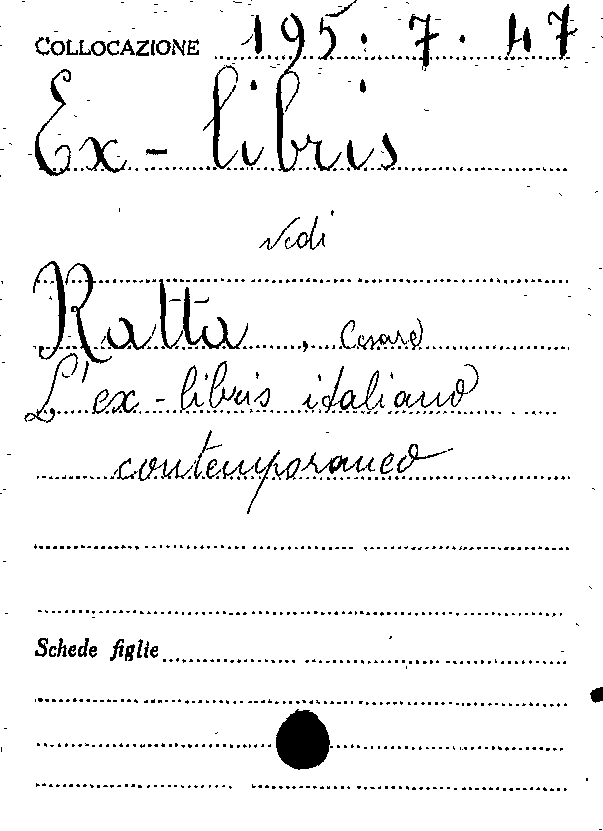 COLLOCAZIONE 195. 7. 47
Ex-libris
vedi
Ratta, Cesare
L'ex-libris italiano
contemporaneo
Schede figlie